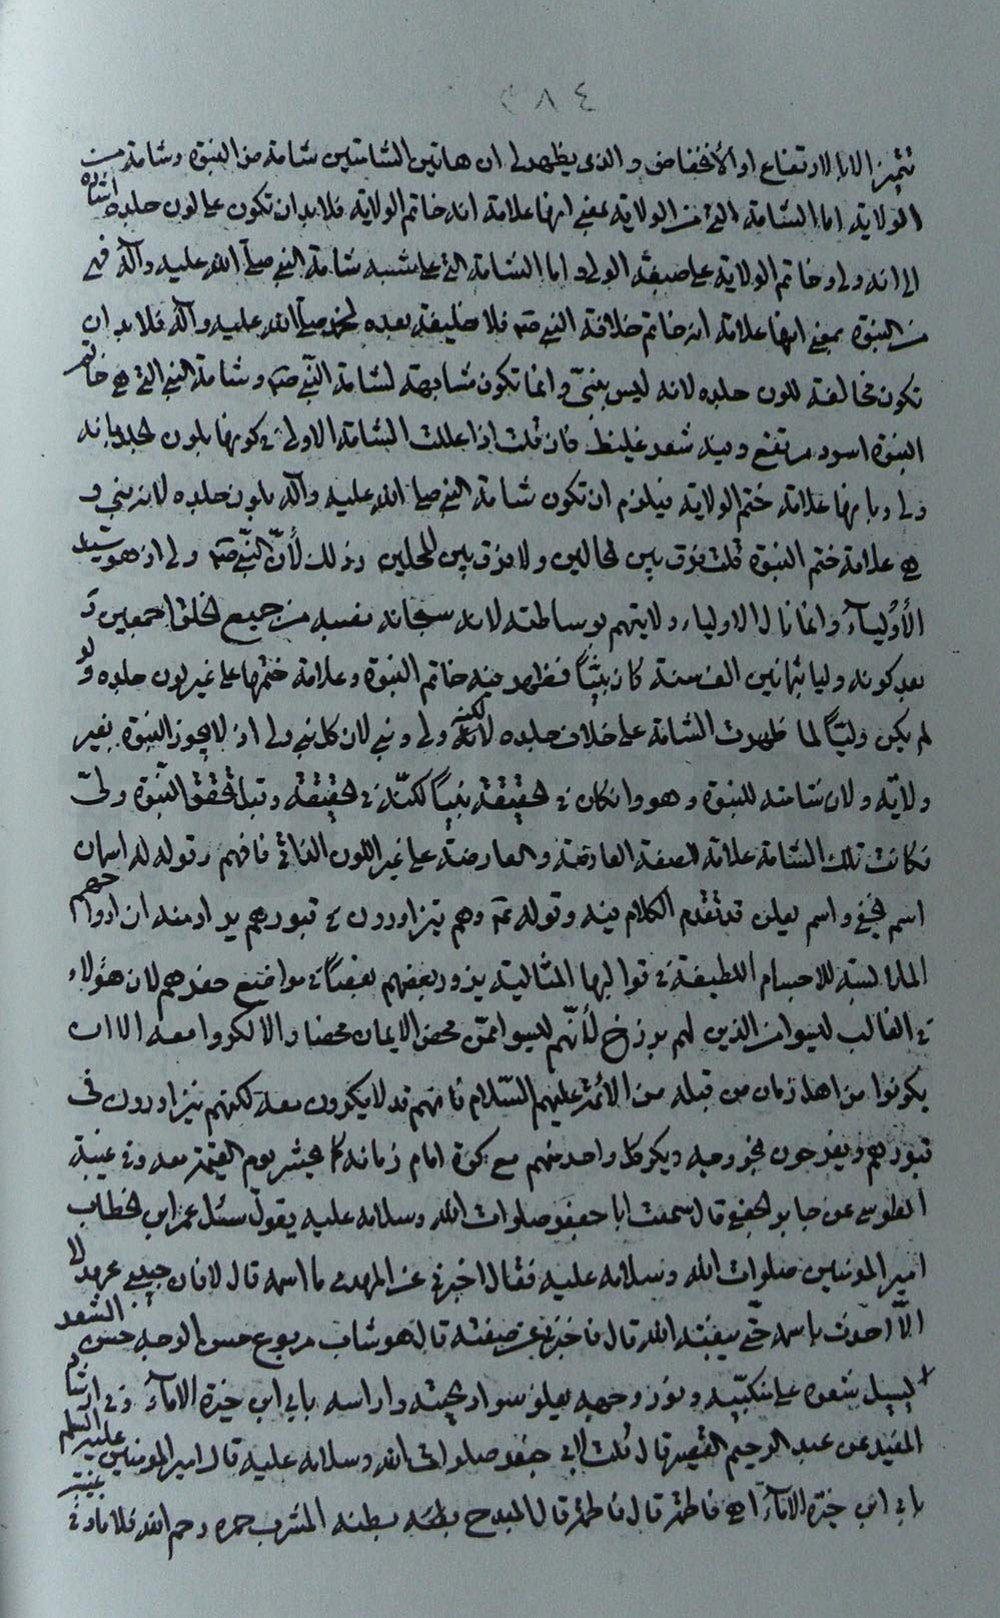 ٢٨٤
تتميز الا بالارتفاع او الأنخفاض والذى يظهر لى ان هاتين الشامتين شامة من النبوة وشامة من
الولاية اما الشامة التى من الولاية بمعنى انها علامة انه خاتم الولاية فلا بد ان تكون على لون جلده اشارة
الى انه ولى وخاتم الولاية على صفة الولى واما الشامة التى على شبه شامة النبى صلى الله عليه وآله فهى
من النبوة بمعنى انها علامة انه خاتم خلافة النبى صم فلا خليفة بعده لمحمد صلى الله عليه وآله فلا بد ان
تكون مخالفة للون جلده لانه ليس بنبىّ وانما تكون مشابهة لشامة النبّى صم وشامة النبى التى هى خاتم
النبوة اسود مرتفع وبيد شعر غليظ فان قلت اذا عللت الشامة الاولى فى كونها بلون الجلد بانه
ولى وبانها علامة ختم الولاية فيلزم ان تكون شامة النبى صلى الله عليه وآله بلون جلده لانه نبى و
هى علامة ختم النبوة قلت فرق بين الحالين ولا فرق بين المحلين وذلك لأنّ النّبى صم ولى اذ هو سيد
الأوليآء وانما نال الاولياء ولايتهم بوساطته لانه سبحانه نفسه من جميع الخلق اجمعين ثم
بعد كونه وليا بثمانين الف سنة كان نبيّاً فظهر فيه خاتم النبوة وعلامة ختمها على غير لون جلده ولو
لم يكن وليّاً لما ظهرت الشامة على خلاف جلده لكنه ولى ونبى لان كل نبى ولى اذ لا يجوز النبوة بغير
ولاية ولان شامته للنبوة وهو وان كان فى الحقيقة نبيّاً لكنّه فى الحقيقة وقبل تحقق النبوة ولىّ
فكانت تلك الشامة علامة للصفة العارضة والعارضة على غير اللون الذاتى فافهم وقوله له اسمان
اسم يخفى واسم يعلن قد تقدم الكلام فيه وقوله عم وهم يتزاورون فى قبورهم يراد منه ان ارواحهم
الملابسة للاجسام اللطيفة فى قوالبها المثالية يزور بعضهم بعضاً فى مواضع حفرهم لان هؤلاء
فى الغالب ليسوا من الذين لهم برزخ لأنّهم ليسوا ممّن محض الايمان محضا والا لكروا معه الا ان
يكونوا من اهل زمان من قبله من الأئمة عليهم السّلام فانهم قد لا يكرون معه لكنهم يتزاورون فى
قبورهم ويفرحون بخروجه ويكر كل واحد منهم مع كرّة امام زمانه كما يحشر يوم القيمة معه وفى غيبة
الطوسى عن جابر الجعفى قال سمعت ابا جعفر صلوات الله وسلامه عليه يقول سئل عمر ابن الخطاب
امير المؤمنين صلوات الله وسلامه عليه فقال اخبرنى عن المهدى ما اسمه قال لا فان حبيبى عهد
الاّ احدث باسمه حتّى يبعثه الله قال فاخبرنى عن صفته قال هو شاب مربوع حسن الوجه حسن الشعر
يسيل شعره على منكبيه ونور وجهه يعلو سواد لحيته وراسه بابى ابن خيرة الامآء وفى ارشاد
المفيد عن عبد الرحيم القصير قال قلت لابى جعفر صلوات الله وسلامه عليه قال امير المؤمنين عليه السلم
بابى ابن خيرة الامآء اهى فاطمة قال فاطمة قال المبدح بطنه المشرب حمرة رحم الله فلانا وفى غيبة